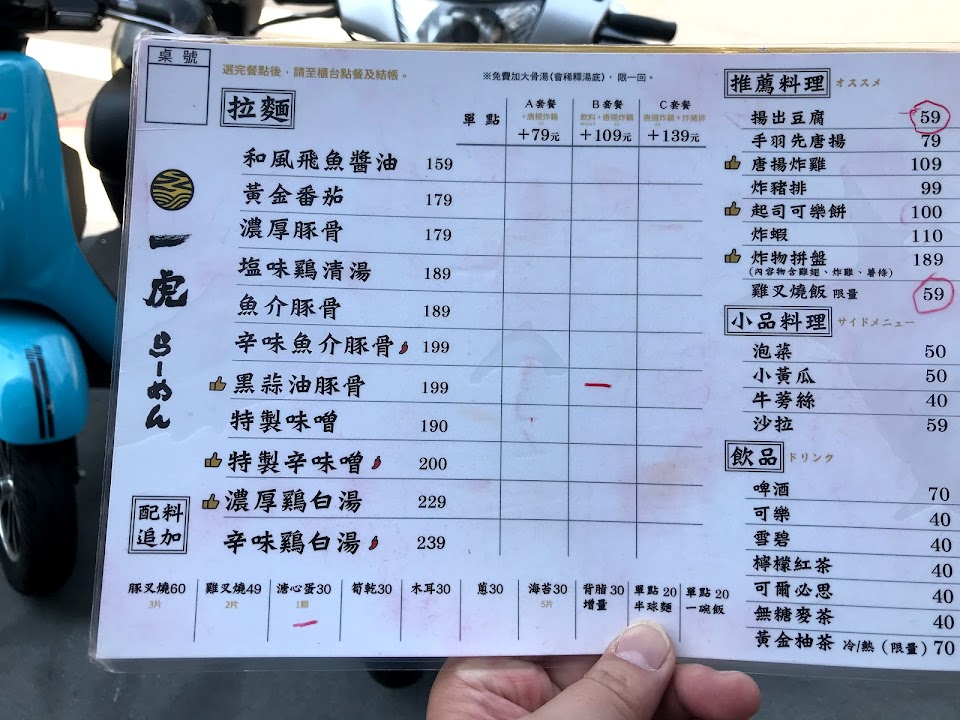 桌號
選完餐點後，請至櫃台點餐及結帳。
※免費加大骨湯(會稀釋湯底)，限一回。
拉麵
單點
A套餐
+唐揚炸鷄
+79元
B套餐
飲料+唐揚炸鷄
+109元
C套餐
唐揚炸鷄+炸豬排
+139元
一虎らーめん
和風飛魚醬油 159
黃金番茄 179
濃厚豚骨 179
塩味鷄清湯 189
魚介豚骨 189
辛味魚介豚骨 199
黑蒜油豚骨 199
特製味噌 190
特製辛味噌 200
濃厚鷄白湯 229
辛味鷄白湯 239
配料追加
豚叉燒60
3片
雞叉燒49
2片
溏心蛋30
1顆
筍乾30
木耳30
蔥30
海苔30
5片
背脂30
增量
單點20
半球麵
單點20
一碗飯
推薦料理 オススメ
揚出豆腐 59
手羽先唐揚 79
唐揚炸雞 109
炸豬排 99
起司可樂餅 100
炸蝦 110
炸物拼盤 189
(內容物含雞翅、炸雞、薯條)
雞叉燒飯 限量 59
小品料理 サイドメニュー
泡菜 50
小黃瓜 50
牛蒡絲 40
沙拉 59
飲品 ドリンク
啤酒 70
可樂 40
雪碧 40
檸檬紅茶 40
可爾必思 40
無糖麥茶 40
黃金柚茶 冷/熱 (限量) 70